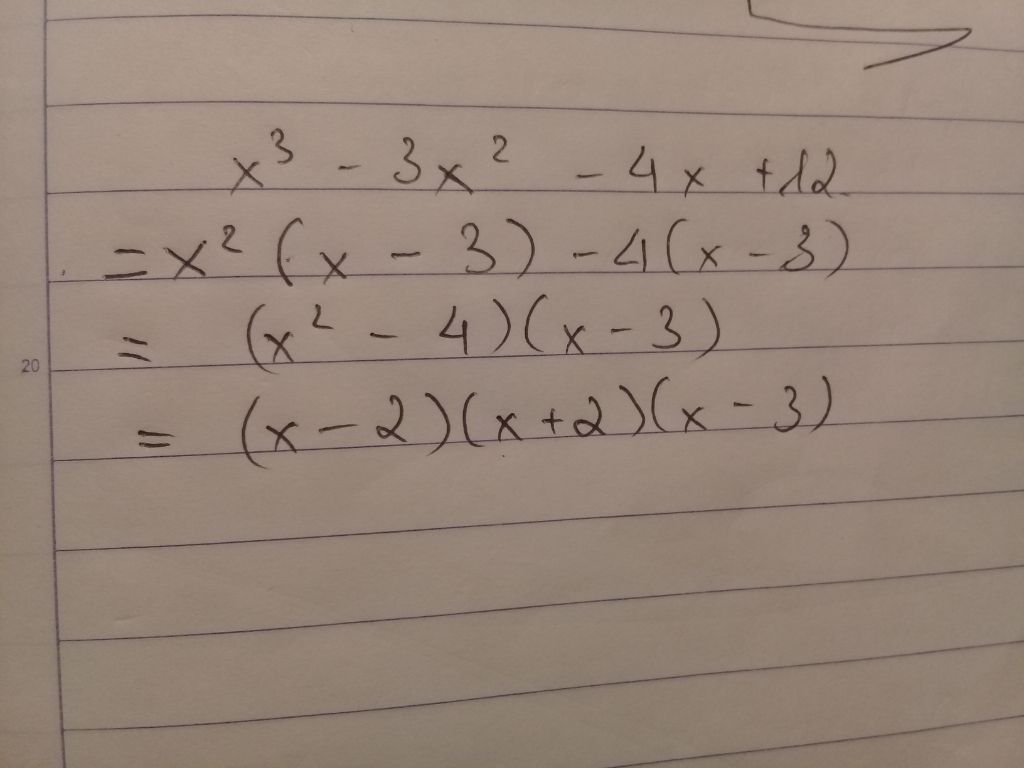 x³ - 3x² - 4x + 12
= x² (x - 3) - 4(x - 3)
= (x² - 4)(x - 3)
20
= (x - 2)(x + 2)(x - 3)